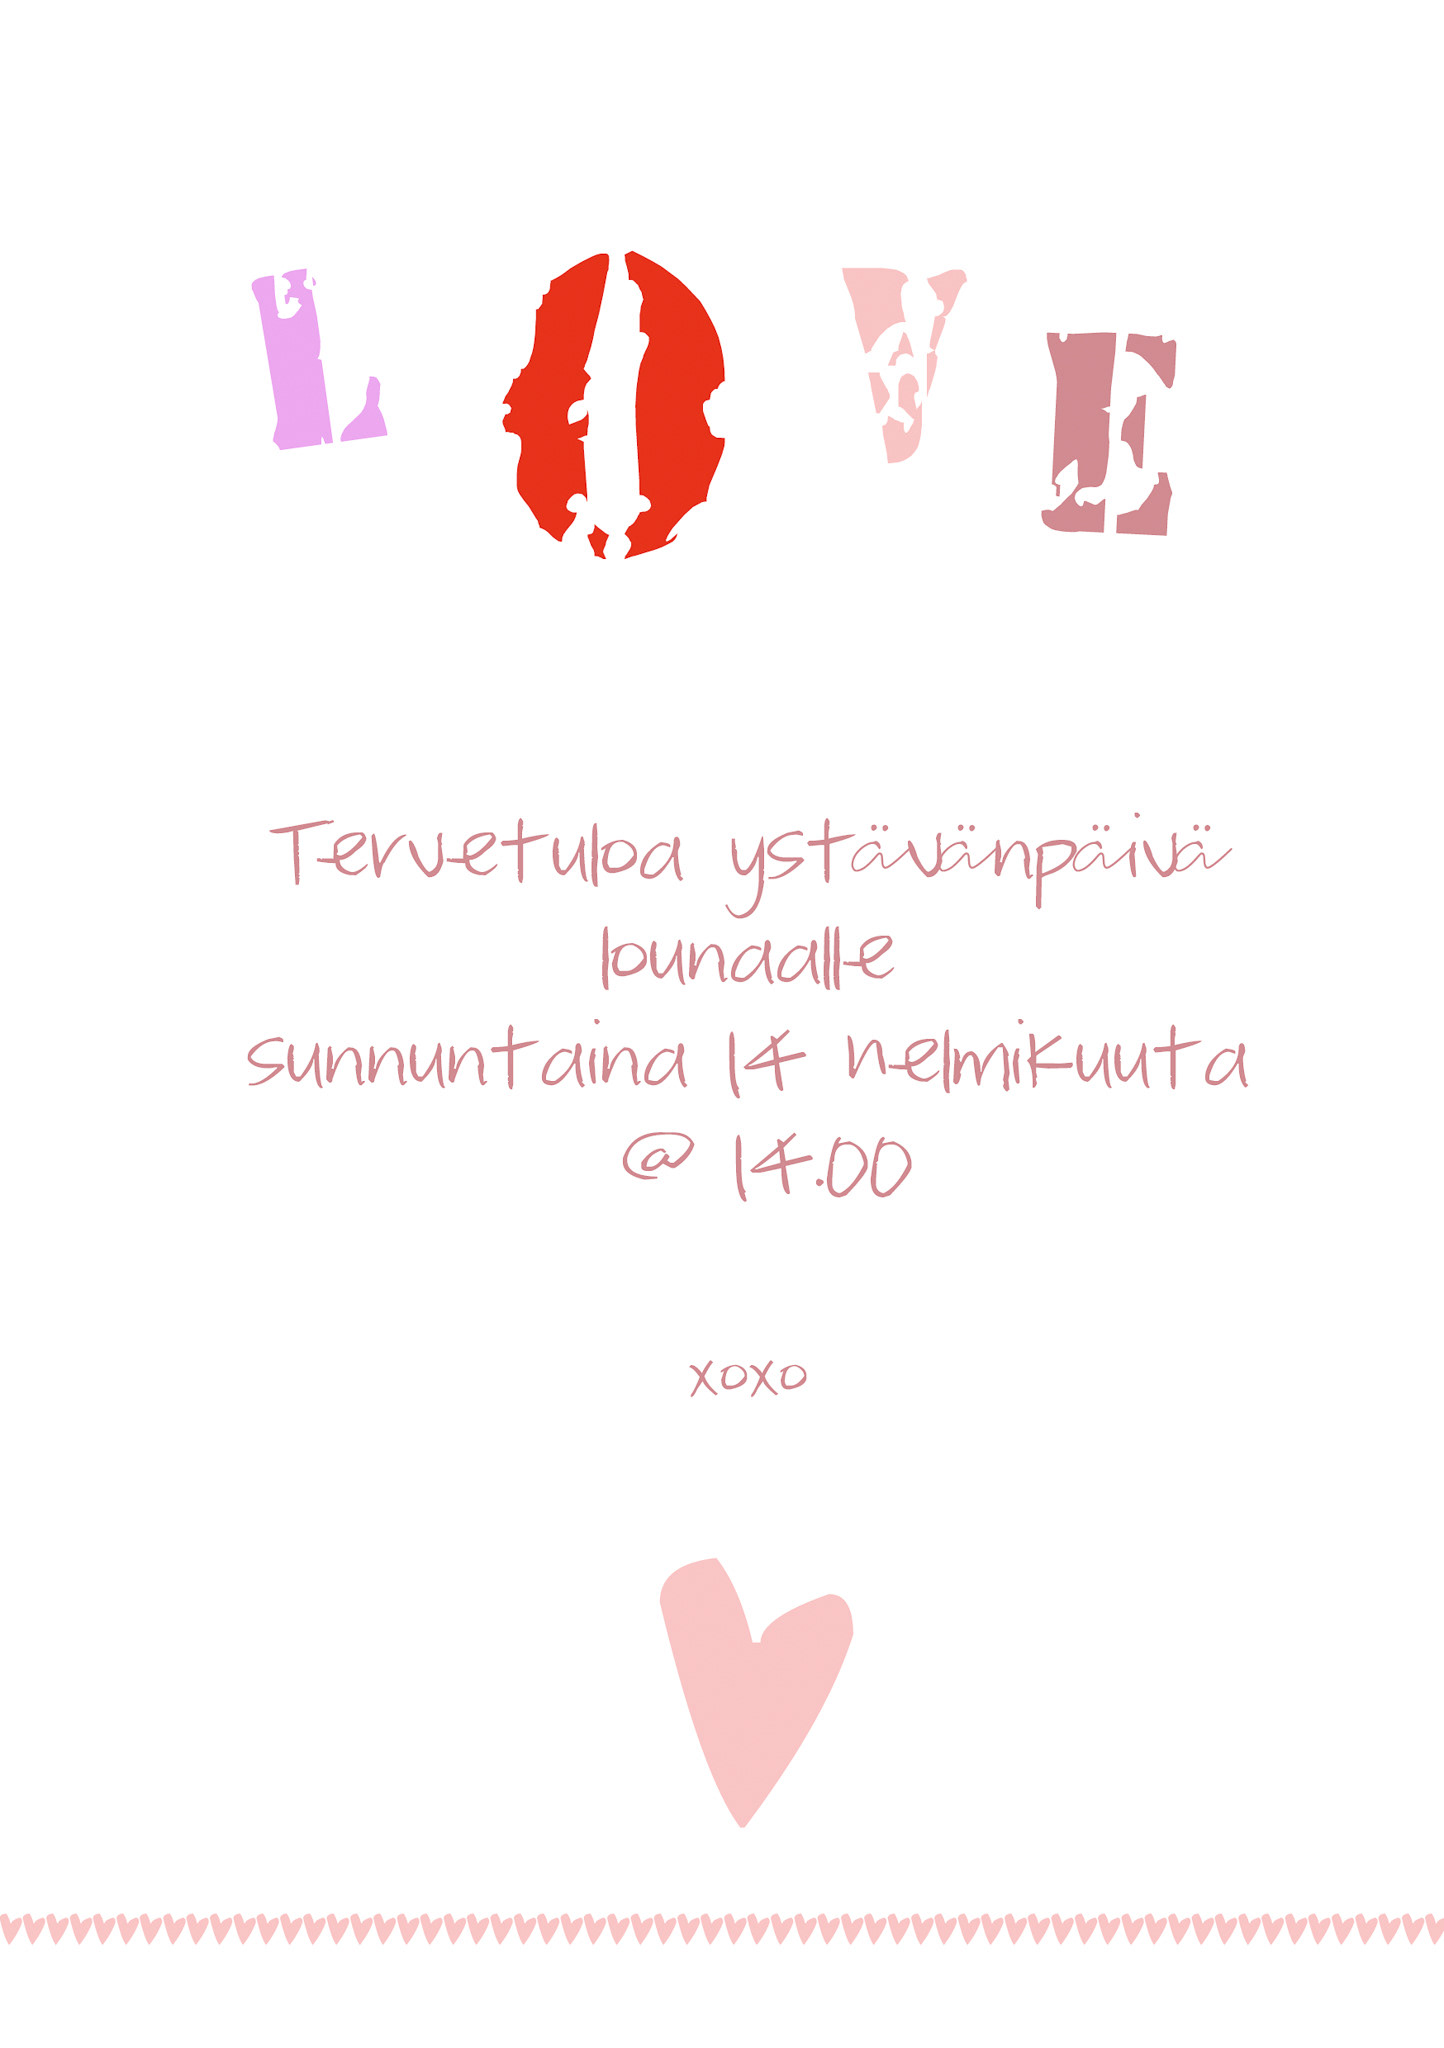 LOVE
Tervetuloa ystävänpäivä
lounaalle
sunnuntaina 14 helmikuuta
@ 14.00
xoxo